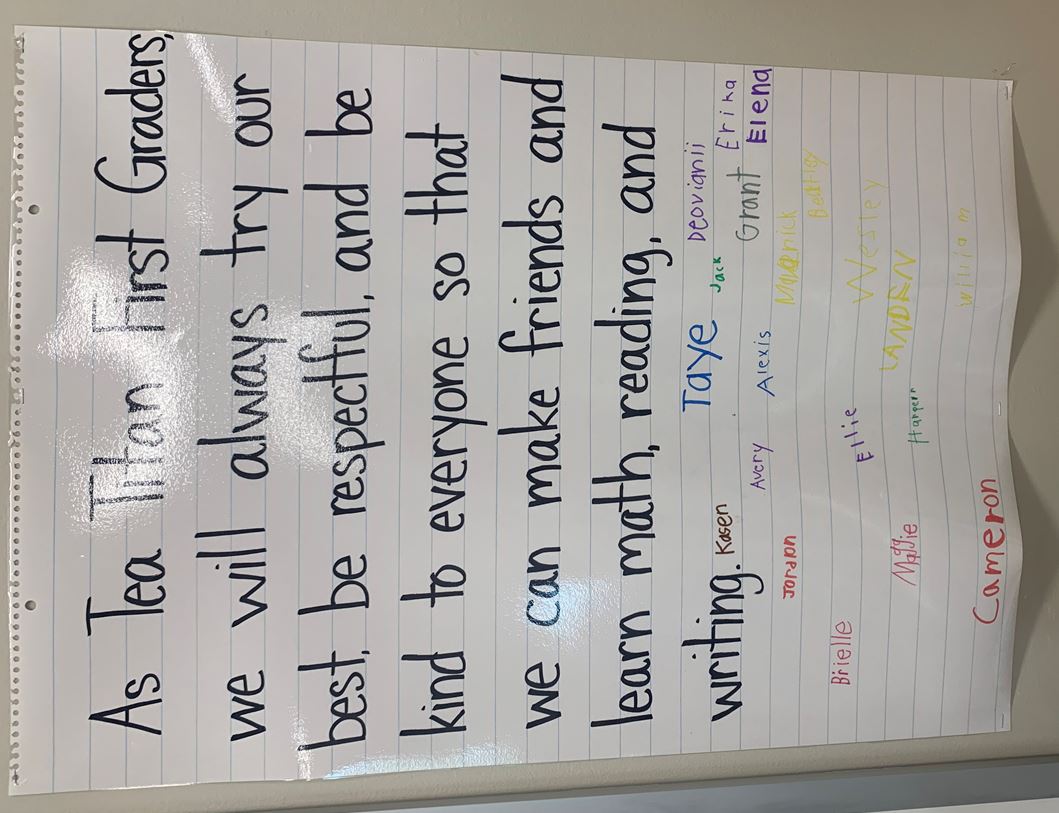 As Tea Titan First Graders,
we will always try our
best, be respectful, and be
kind to everyone so that
we can make friends and
learn math, reading, and
writing.
Kasen
Taye
Jack
Deovianii
Erika
Avery
Alexis
Grant
Elena
Jordon
Maverick
Brielle
Ellie
Wesley
Maggie
LANDEN
William
Cameron